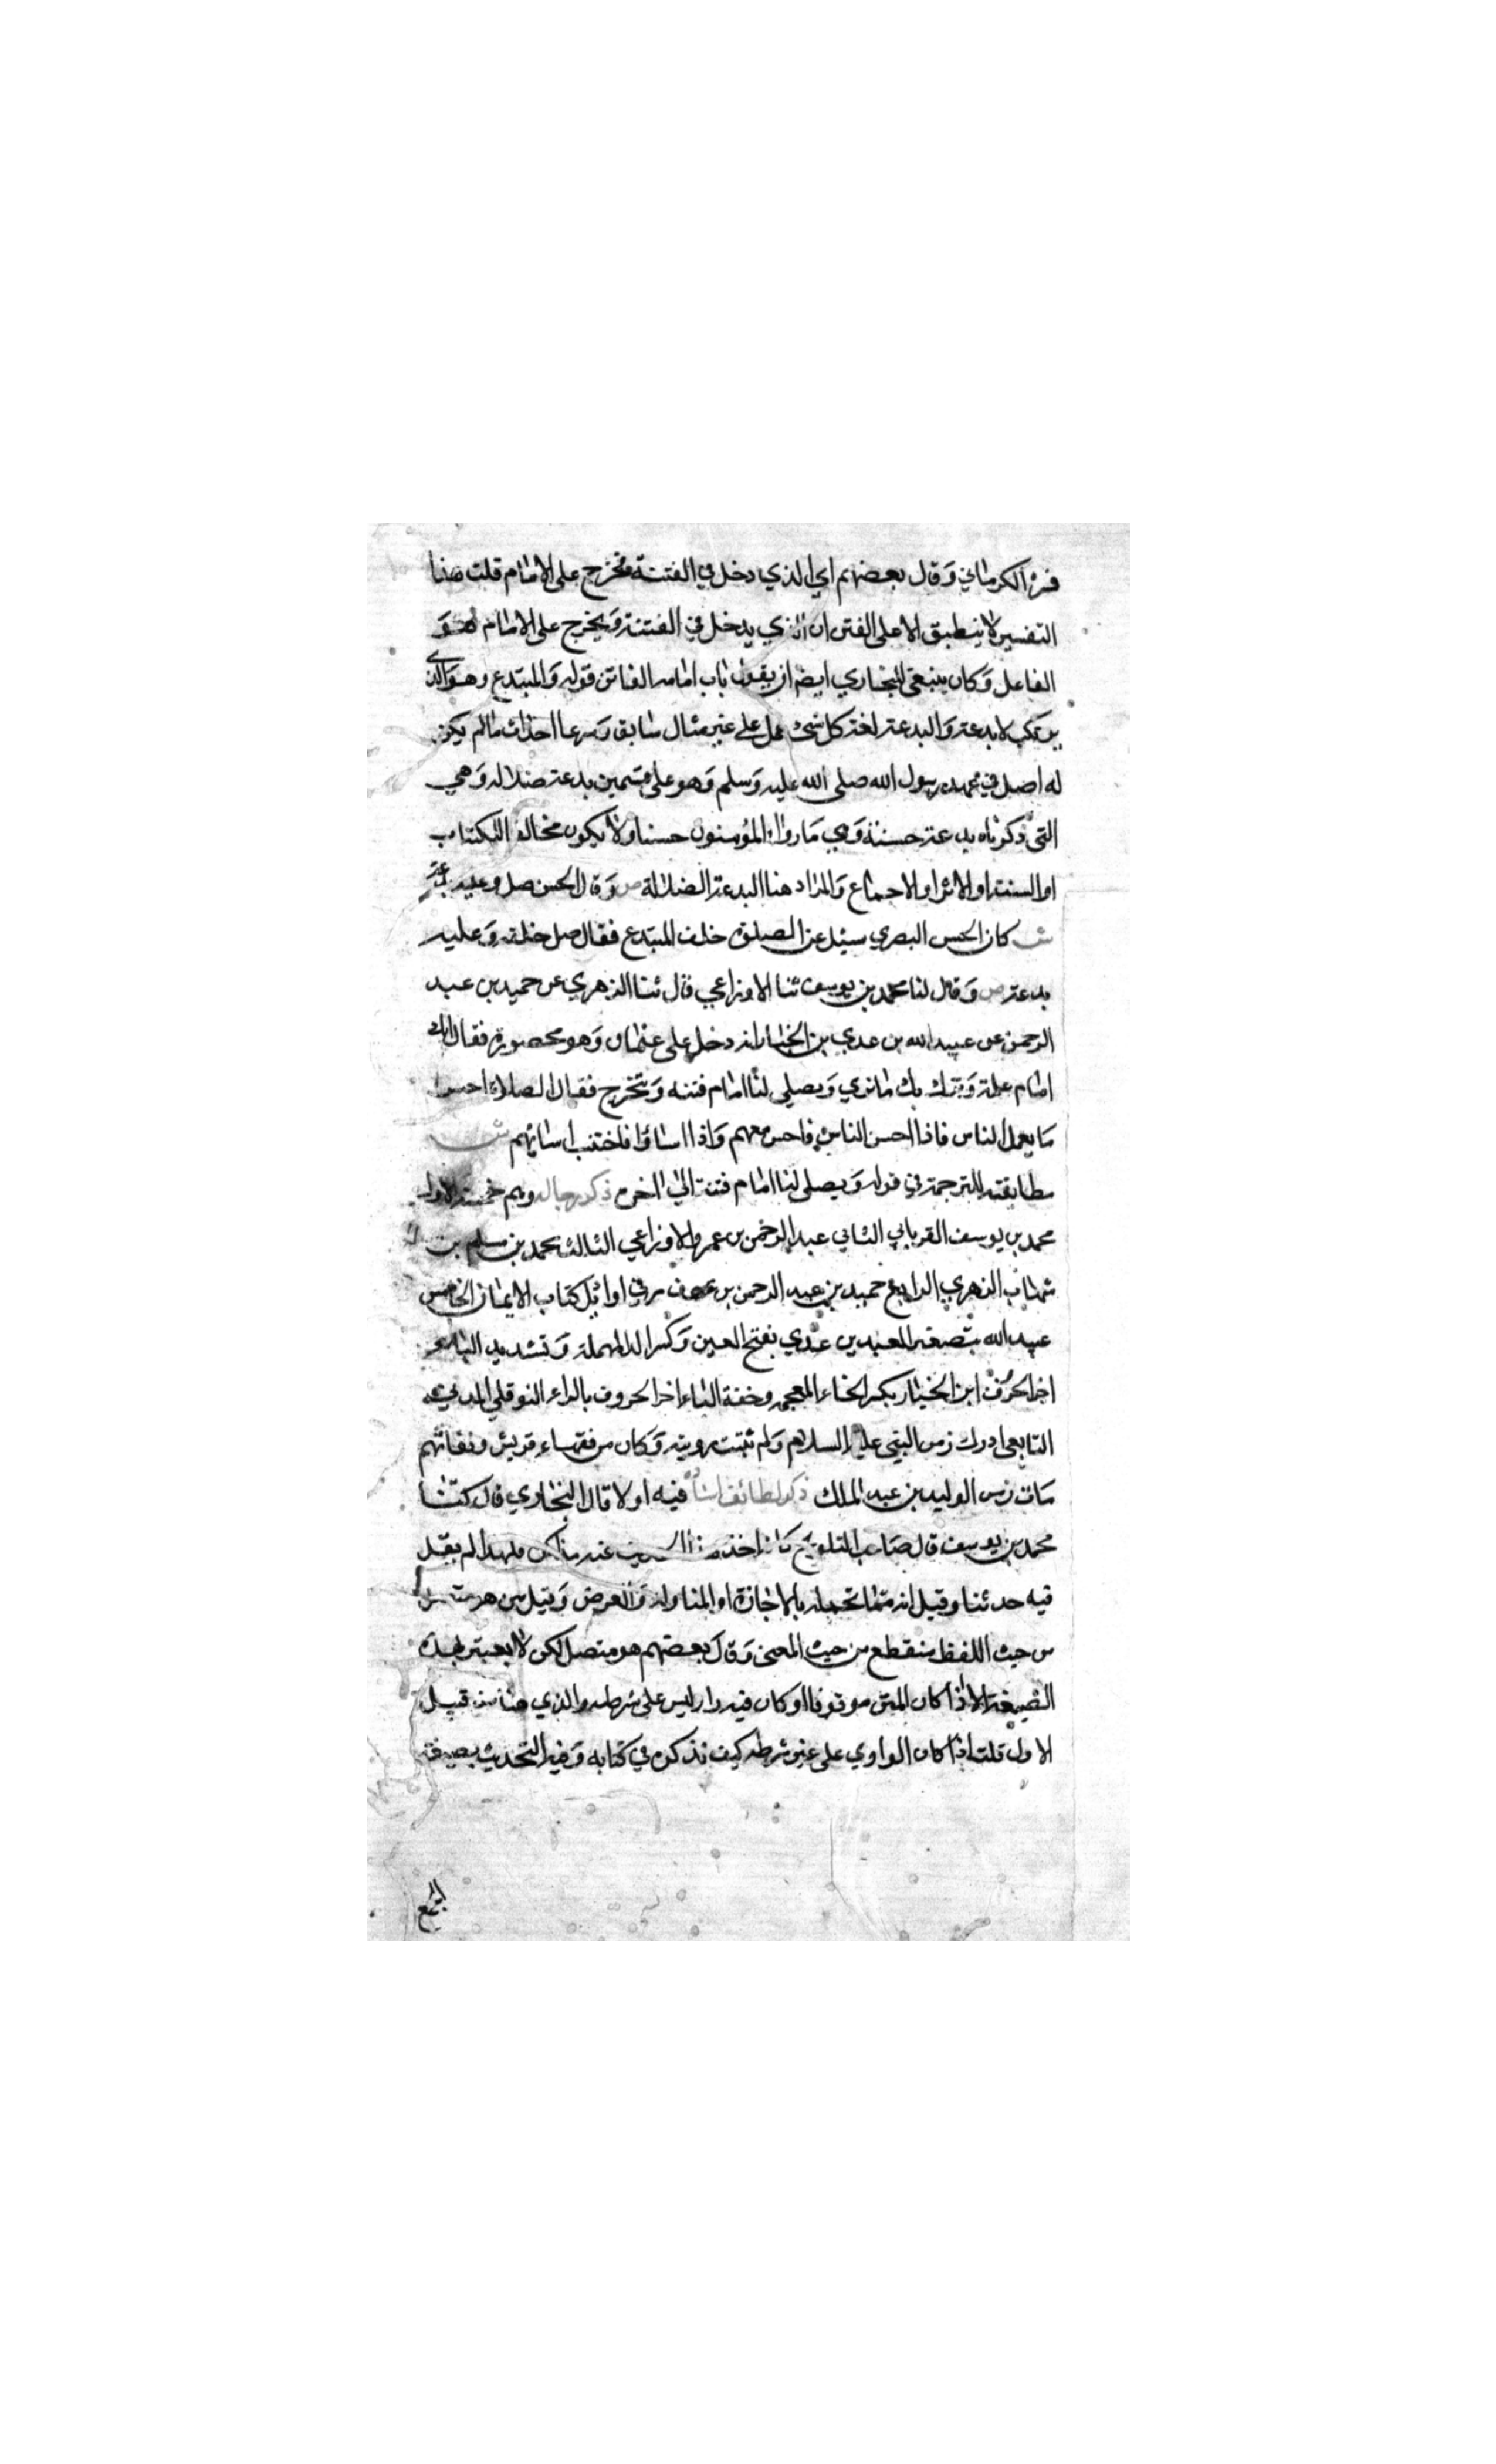 فسره الكرماني وقال بعضهم اي الذي دخل في الفتنة فخرج على الامام قلت هذا
التفسير لا ينطبق الا على الفتن ان الذي يدخل في الفتنة ويخرج على الامام هو
الفاعل وكان ينبغي للبخاري ايضا ان يقول باب امامة الفاتن قوله والمبتدع وهو الذي
يرتكب لا بدعة والبدعة لغة كل شئ عمل على غير مثال سابق وشرعا احداث ما لم يكن
له اصل في عهد رسول الله صلى الله عليه وسلم وهو على قسمين بدعة ضلالة وهي
التي ذكرناه بدعة حسنة وهي ما رواه المؤمنون حسنا ولا يكون مخالف الكتاب
او السنة او الاثر او الاجماع والمراد هنا البدعة الضلالة ص وقال الحسن صل وعليه بدعته
ش كان الحسن البصري سئل عن الصلوة خلف المبتدع فقال صل خلفه وعليه
بدعته ص وقال لنا محمد بن يوسف ثنا الاوزاعي قال ثنا الزهري عن حميد بن عبد
الرحمن عن عبيد الله بن عدي بن الخيار انه دخل على عثمان وهو محصور فقال انك
امام عامة ونزل بك ما نري ويصلي لنا امام فتنه ونتحرج فقال الصلاة احسن
ما يعمل الناس فاذا احسن الناس فاحسن معهم واذا اساؤا فاجتنب اسائهم ش
مطابقته للترجمة في قوله ويصلي لنا امام فتنة الى اخره ذكر رجاله وهم خمسة الاول
محمد بن يوسف الفريابي الثاني عبد الرحمن بن عمرو الاوزاعي الثالث محمد بن مسلم بن
شهاب الزهري الرابع حميد بن عبد الرحمن بن عوف مر في اوائل كتاب الايمان الخامس
عبيد الله بتصغير العبد بن عدي بفتح العين وكسر الدال المهملة وتشديد الياء
اخر الحروف ابن الخيار بكسر الخاء المعجمه وخفة الياء اخر الحروف بالراء النوفلي المدني
التابعي ادرك زمن النبي عليه السلام ولم تثبت رويته وكان من فقهاء قريش وثقاتهم
مات زمن الوليد بن عبد الملك ذكر لطائف اسناده فيه اولا قال البخاري قال لنا
محمد بن يوسف قال صاحب التلويح كانه اخذ هذا الحديث عنه مذاكرة فلهذا لم يقل
فيه حدثنا وقيل انه مما تحمله بالاجازة او المناولة والعرض وقيل من هو متصل
من حيث اللفظ منقطع من حيث المعنى وقال بعضهم هو متصل لكن لا يعبر بهذه
الصيغة الا اذا كان المتن موقوفا او كان فيه راو ليس على شرطه والذي هنا من قبيل
الاول قلت اذا كان الراوي على غير شرطه كيف نذكره في كتابه وخير التحديث بصيغة
الجمع